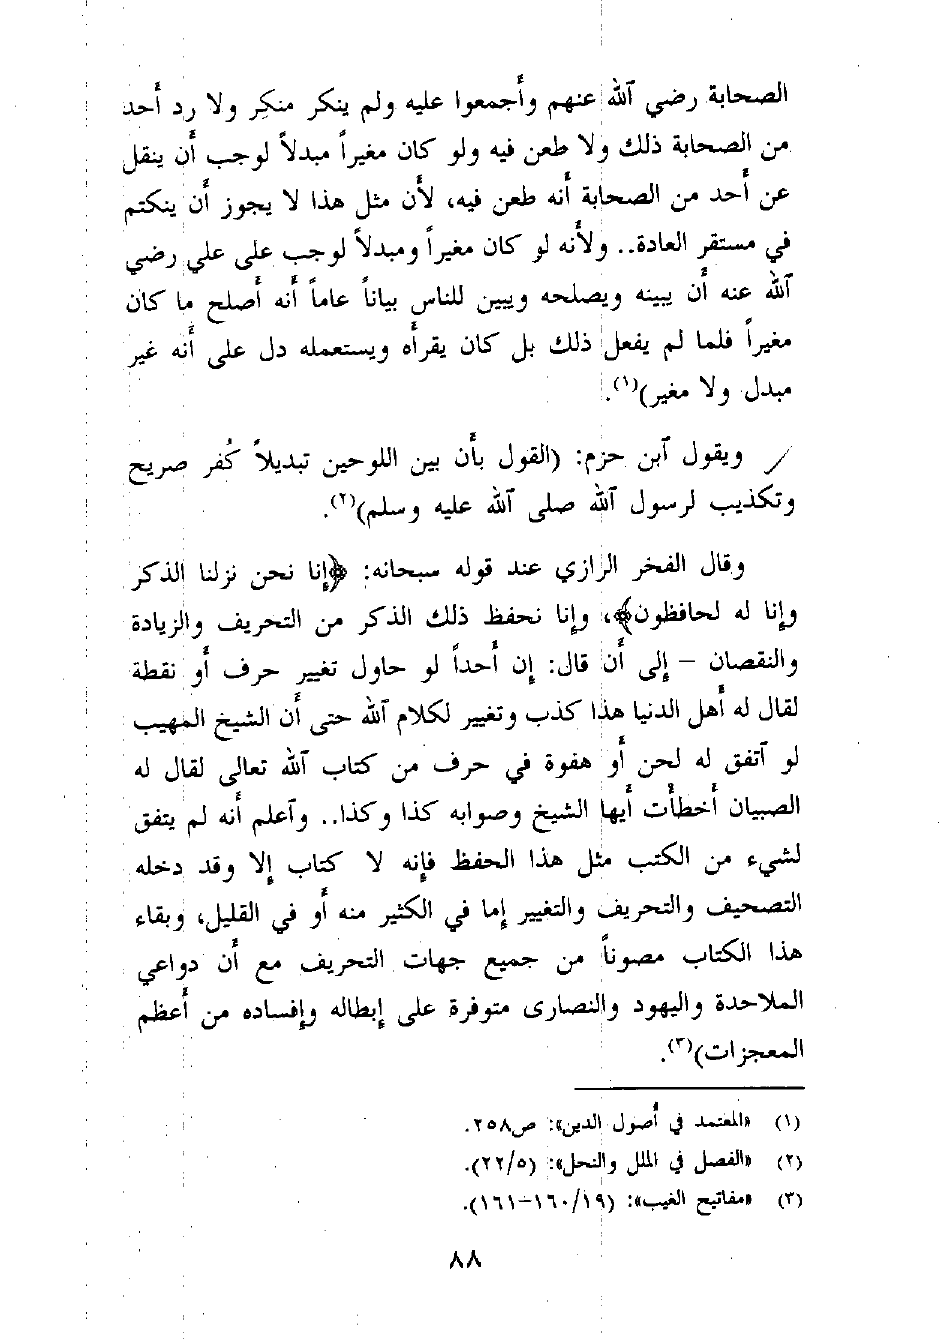 الصحابة رضي الله عنهم وأجمعوا عليه ولم ينكر منكر ولا رد أحد
من الصحابة ذلك ولا طعن فيه ولو كان مغيراً مبدلاً لوجب أن ينقل
عن أحد من الصحابة أنه طعن فيه، لأن مثل هذا لا يجوز أن ينكتم
في مستقر العادة.. ولأنه لو كان مغيراً ومبدلاً لوجب على علي رضي
الله عنه أن يبينه ويصلحه ويبين للناس بياناً عاماً أنه أصلح ما كان
مغيراً فلما لم يفعل ذلك بل كان يقرأه ويستعمله دل على أنه غير
مبدل ولا مغير)(١).
ويقول ابن حزم: (القول بأن بين اللوحين تبديلاً كُفر صريح
وتكذيب لرسول الله صلى الله عليه وسلم)(٢).
وقال الفخر الرازي عند قوله سبحانه: ﴿إنا نحن نزلنا الذكر
وإنا له لحافظون﴾، وإنا نحفظ ذلك الذكر من التحريف والزيادة
والنقصان – إلى أن قال: إن أحداً لو حاول تغيير حرف أو نقطة
لقال له أهل الدنيا هذا كذب وتغيير لكلام الله حتى أن الشيخ المهيب
لو اتفق له لحن أو هفوة في حرف من كتاب الله تعالى لقال له
الصبيان أخطأت أيها الشيخ وصوابه كذا وكذا.. واعلم أنه لم يتفق
لشيء من الكتب مثل هذا الحفظ فإنه لا كتاب إلا وقد دخله
التصحيف والتحريف والتغيير إما في الكثير منه أو في القليل، وبقاء
هذا الكتاب مصوناً من جميع جهات التحريف مع أن دواعي
الملاحدة واليهود والنصارى متوفرة على إبطاله وإفساده من أعظم
المعجزات)(٣).
(١) «المعتمد في أصول الدين»: ص٢٥٨.
(٢) «الفصل في الملل والنحل»: (٢٢/٥).
(٣) «مفاتيح الغيب»: (١٦٠/١٩–١٦١).
٨٨